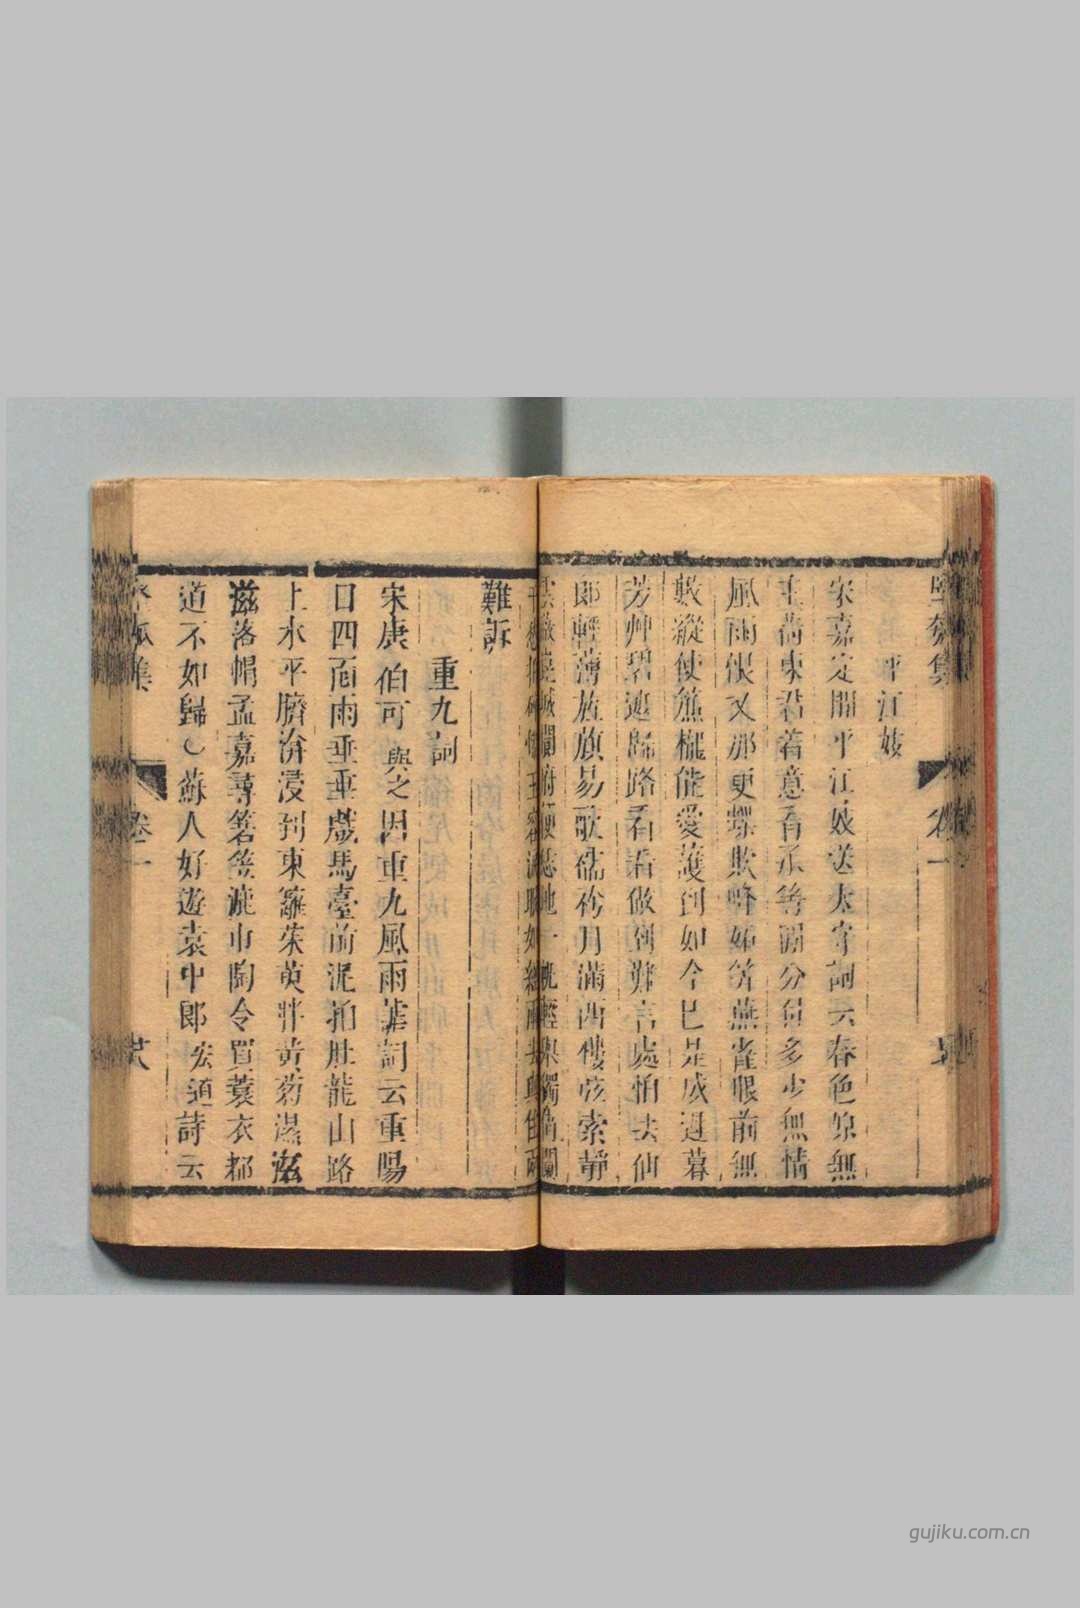 堅瓠集
卷一
平江妓
宋嘉定間平江妓送太守詞云春色原無
主荷東君着意看承等閒分付多少無情
風雨恨又那更蝶欺蜂妬笑燕雀眼前無
數縱使簾櫳能愛護到如今已是成遲暮
芳艸碧遮歸路看看做到難言處怕去仙
郎輕薄旌旗易歌襦袴月滿西樓弦索靜
雲蔽崑城閬府便恁地一帆輕舉獨倚闌
難訴
重九詞
宋康伯可與之因重九風雨作詞云重陽
日四面雨垂垂戲馬臺前泥拍肚龍山路
上水平臍渰浸到東籬茱萸胖黃菊濕滋
滋落帽孟嘉尋箬笠漉巾陶令買蓑衣都
道不如歸○蘇人好遊袁中郎宏道詩云
堅瓠集
卷一
gujiku.com.cn